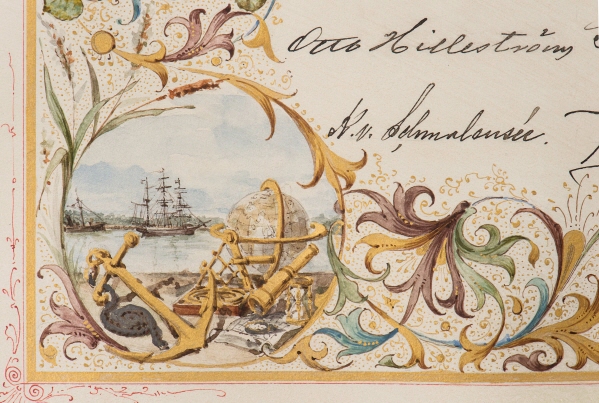 Otto Hilleström
N. v. Schmalensée.